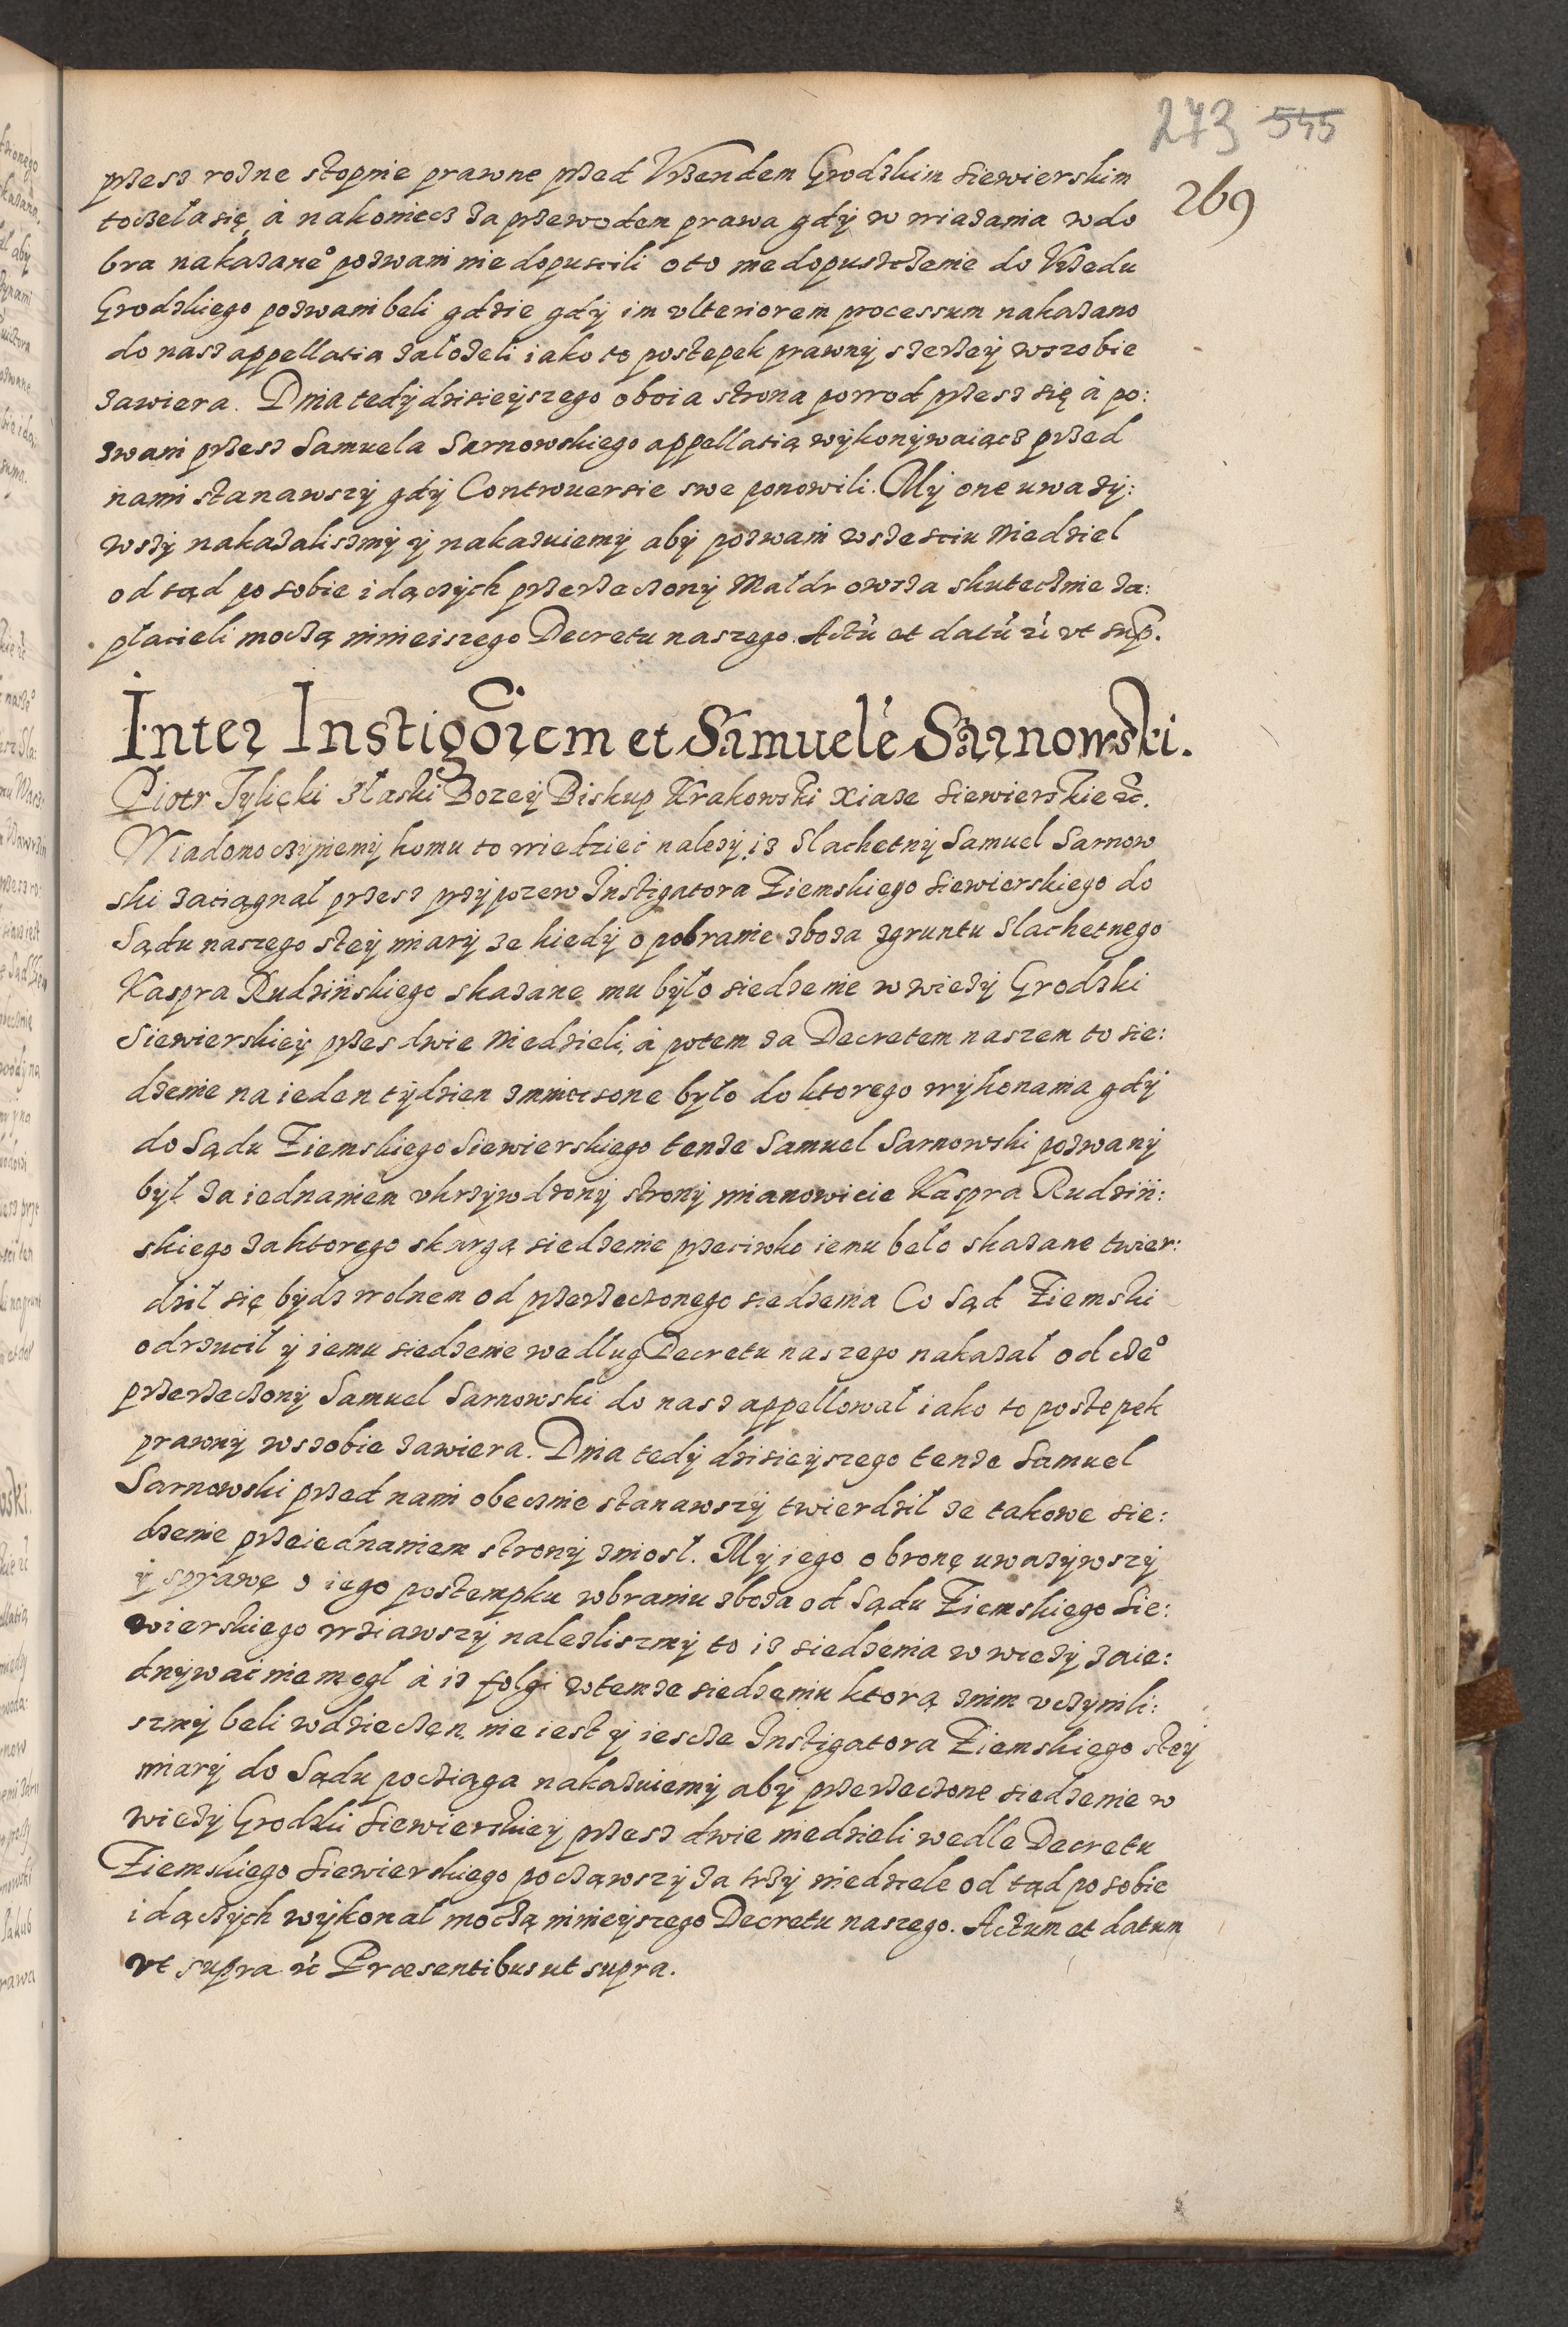 273 545
269
przesz rozne stopnie prawne przed Vrzendem Grodzkim Siewierskim
toczeła się, á nakoniecz za przewodem prawa gdÿ w wiazania w do
bra nakazane° pozwani nie dopuscili o to niedopuszczenie do Vrzedu
Grodzkiego pozwani beli gdzie gdÿ im vlteriorem processum nakazano
do nasz appellatią założeli iako to postepek prawnÿ szerzeÿ wszobie
zawiera. Dnia tedÿ dzisieÿszego oboia strona powod przesz się á po:
zwani przesz Samuela Sarnowskiego appellatią wÿkonÿwaiącz przed
nami stanawszÿ gdÿ Controuersie swe ponowili. Mÿ one uwazÿ:
wszÿ nakazaliszmÿ ÿ nakazuiemÿ abÿ pozwani w szesciu Niedziel
od tąd po sobie idączÿch przerzeczonÿ Maldr owsza skutecznie za:
płacieli moczą ninieiszego Decretu naszego. Actũ et datũ &c vt sup.
Inter Instigorem et Samuelē Sarnowski.
Piotr Tylicki z łaski Bozeÿ Biskup Krakowski Xiaze Siewierskie &c.
Wiadomo czÿniemÿ komu to wiedzieć nalezÿ, iz Slachetnÿ Samuel Sarnow
ski zaciągnal przesz przÿpozew Instigatora Ziemskiego Siewierskiego do
Sądu naszego steÿ miarÿ ze kiedÿ o pobranie zboza zgruntu Slachetnego
Kaspra Rudzińskiego skazane mu bÿło siedzenie w wiezÿ Grodzki
Siewierskieÿ przes dwie Niedzieli, á potem za Decretem naszem to sie:
dzenie na ieden tÿdzien zmnieiszone bÿło do ktorego wÿkonania gdÿ
do Sądu Ziemskiego Siewierskiego tenze Samuel Sarnowski pozwanÿ
bÿł za iednaniem vkrzÿwdzonÿ stronÿ mianowicie Kaspra Rudziń:
skiego za ktorego skargą siedzenie przeciwko iemu beło skazane twier:
dził się bÿdz wolnem od przerzeczonego siedzenia Co Sąd Ziemski
odrzucił ÿ iemu siedzenie wedlug Decretu naszego nakazał od cze°
przerzeczonÿ Samuel Sarnowski do nasz appellował iako to postepek
prawnÿ wszobie zawiera. Dnia tedÿ dzisieÿszego tenze Samuel
Sarnowski przed nami obecznie stanawszÿ twierdził ze takowe sie:
dzenie przeiednaniem stronÿ zniosł. Mÿ iego obronę uwazÿwszÿ
ÿ sprawę o iego postempku wbraniu zboza od Sądu Ziemskiego Sie:
wierskiego wziawszÿ nalezliszmÿ to iz siedzenia w wiezÿ zaie:
dnÿwać nie mogł á iz folgi wtemze siedzeniu ktorą znim vczÿnili:
szmÿ beli wdzieczen nie iest ÿ iescze Instigatora Ziemskiego steÿ
miarÿ do Sądu pocziąga nakazuiemÿ abÿ przerzeczone siedzenie w
wiezÿ Grodzki Siewierskieÿ przesz dwie niedzieli wedle Decretu
Ziemskiego Siewierskiego poczawszÿ za trzÿ niedziele od tąd po sobie
idączÿch wÿkonał moczą ninieÿszego Decretu naszego. Actum et datum
vt supra &c Præsentibus ut supra.